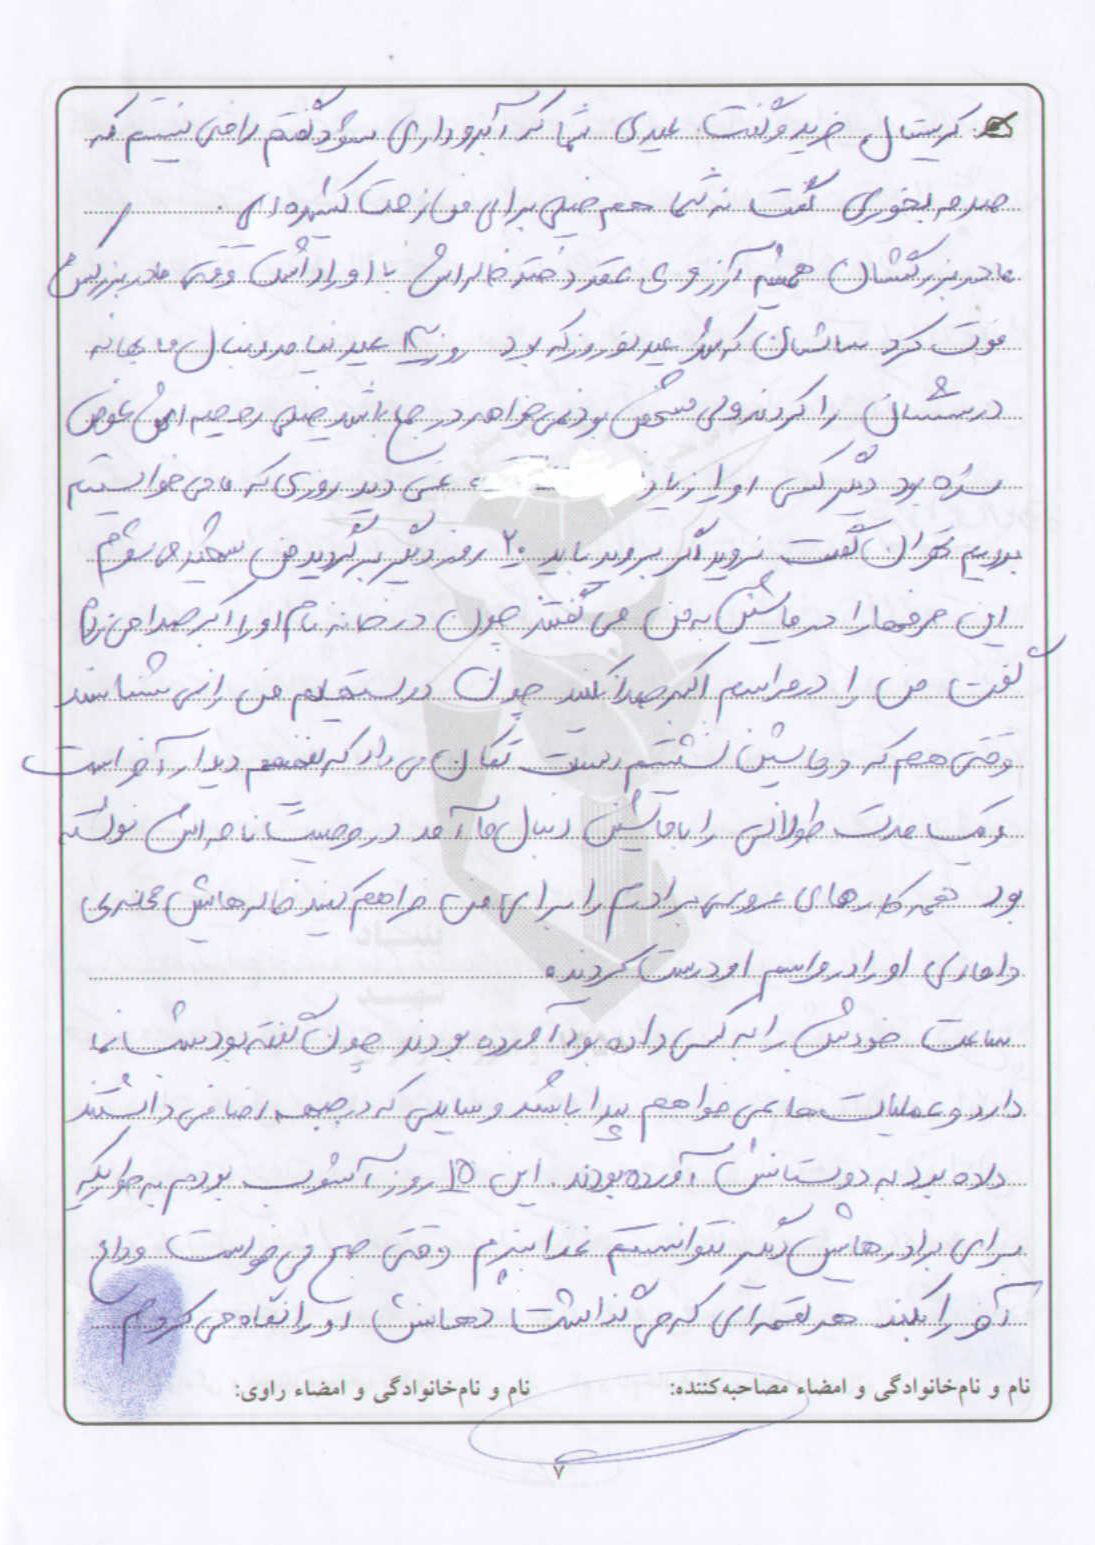 کریستال خرید و گفت: عیدی شما که آبروداری میشود گفتم راضی نیستم که
صدمه بخوری گفت نه شما هم خیلی برای من زحمت کشیده‌ای.
مادربزرگشان همیشه آرزوی عقد دختر خاله‌اش با او را داشت وقتی مادربزرگش
فوت کرد سالشان که عید نوروز که بود روز ۴ عید نیامد دنبال ما بخانه
درستشان را کردند ولی مشخص بود نمی‌خواهد در جمع باشد خیلی روحیه‌اش عوض
شده بود دیگر کسی او را زیاد نمی دید روزی که ما می خواستیم
برویم تهران گفت نروید اگر بروید باید ۲۰ روز دیگر برگردید من شهید می شوم
این حرفها را در ماشین به من می گفتند چون در خانه نام او را اکبر صدا می زدم
گفت من را در مراسم اکبر صدا کنید چون دوستهایم من را نمی شناسند
وقتی هم که در ماشین نشستیم دست تکان می داد که بفهمم دیدار آخر است
و یک مدت طولانی را با ماشین دنبال ما آمد در وصیت نامه اش نوشته
بود همه کارهای عروسی برادرم را برای من فراهم کنید خاله هایش
دامادی او را در مراسم او درست کردند.
ساعت خودش را به کسی داده بود آورده بودند چون گفته بود شب نما
دارد و عملیات ها نمی خواهم پیدا باشد و وسایلی که در جبهه اضافی داشتند
داده بود به دوستانش آورده بودند. این ۱۵ روز آشوب بودم به طوریکه
برای برادرهایش دیگر نتوانستم غذا بپزم وقتی صبح می خواست وداع
آخر را بکند هر لقمه ای که می گذاشت دهانش او را نگاه می کردم
نام و نام‌خانوادگی و امضاء مصاحبه‌کننده: نام و نام‌خانوادگی و امضاء راوی:
۷